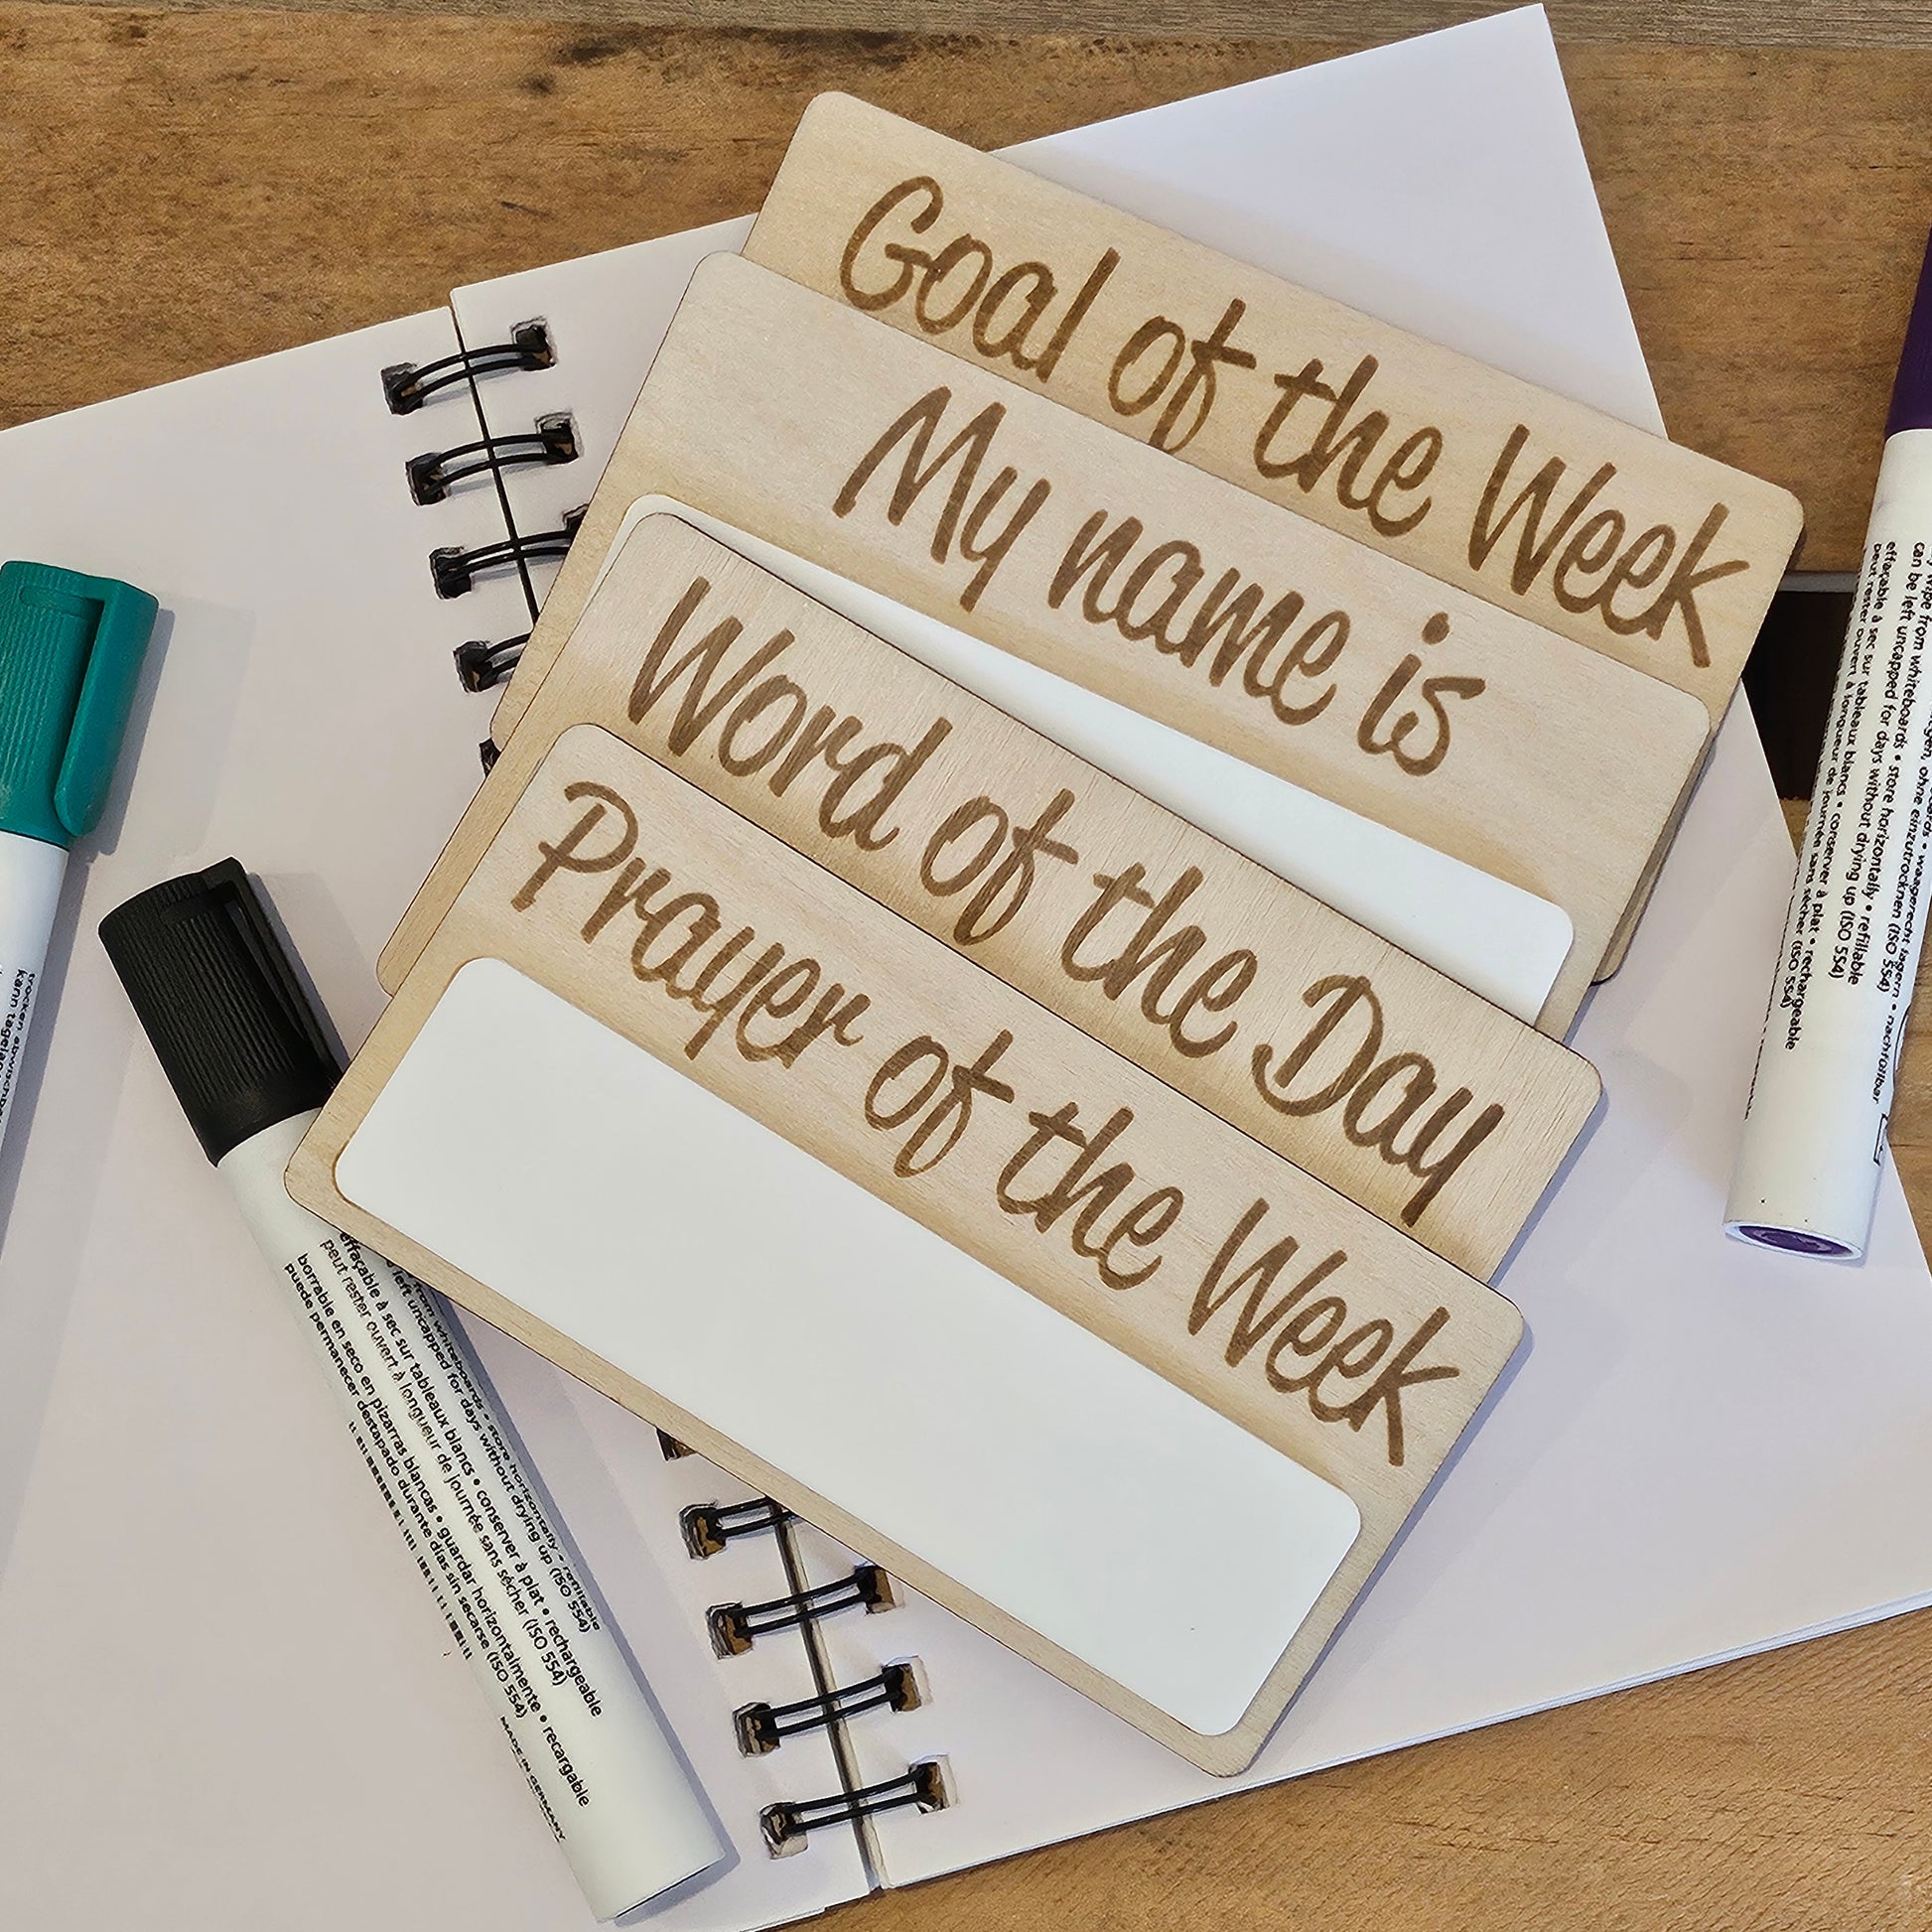 Goal of the Week
My name is
Word of the Day
Prayer of the Week
from whiteboards • store horizontally • refillable
left uncapped for days without drying up (ISO 554)
effaçable à sec sur tableaux blancs • conserver à plat • rechargeable
peut rester ouvert à longueur de journée sans sécher (ISO 554)
borrable en seco en pizarras blancas • guardar horizontalmente • recargable
puede permanecer destapado durante días sin secarse (ISO 554)
MADE IN GERMANY
trocken abwischbar
kann tagelang
ohne einzutrocknen (ISO 554) • nachfüllbar
wipe from whiteboards • store horizontally • refillable
can be left uncapped for days without drying up (ISO 554)
effaçable à sec sur tableaux blancs • conserver à plat • rechargeable
peut rester ouvert à longueur de journée sans sécher (ISO 554)